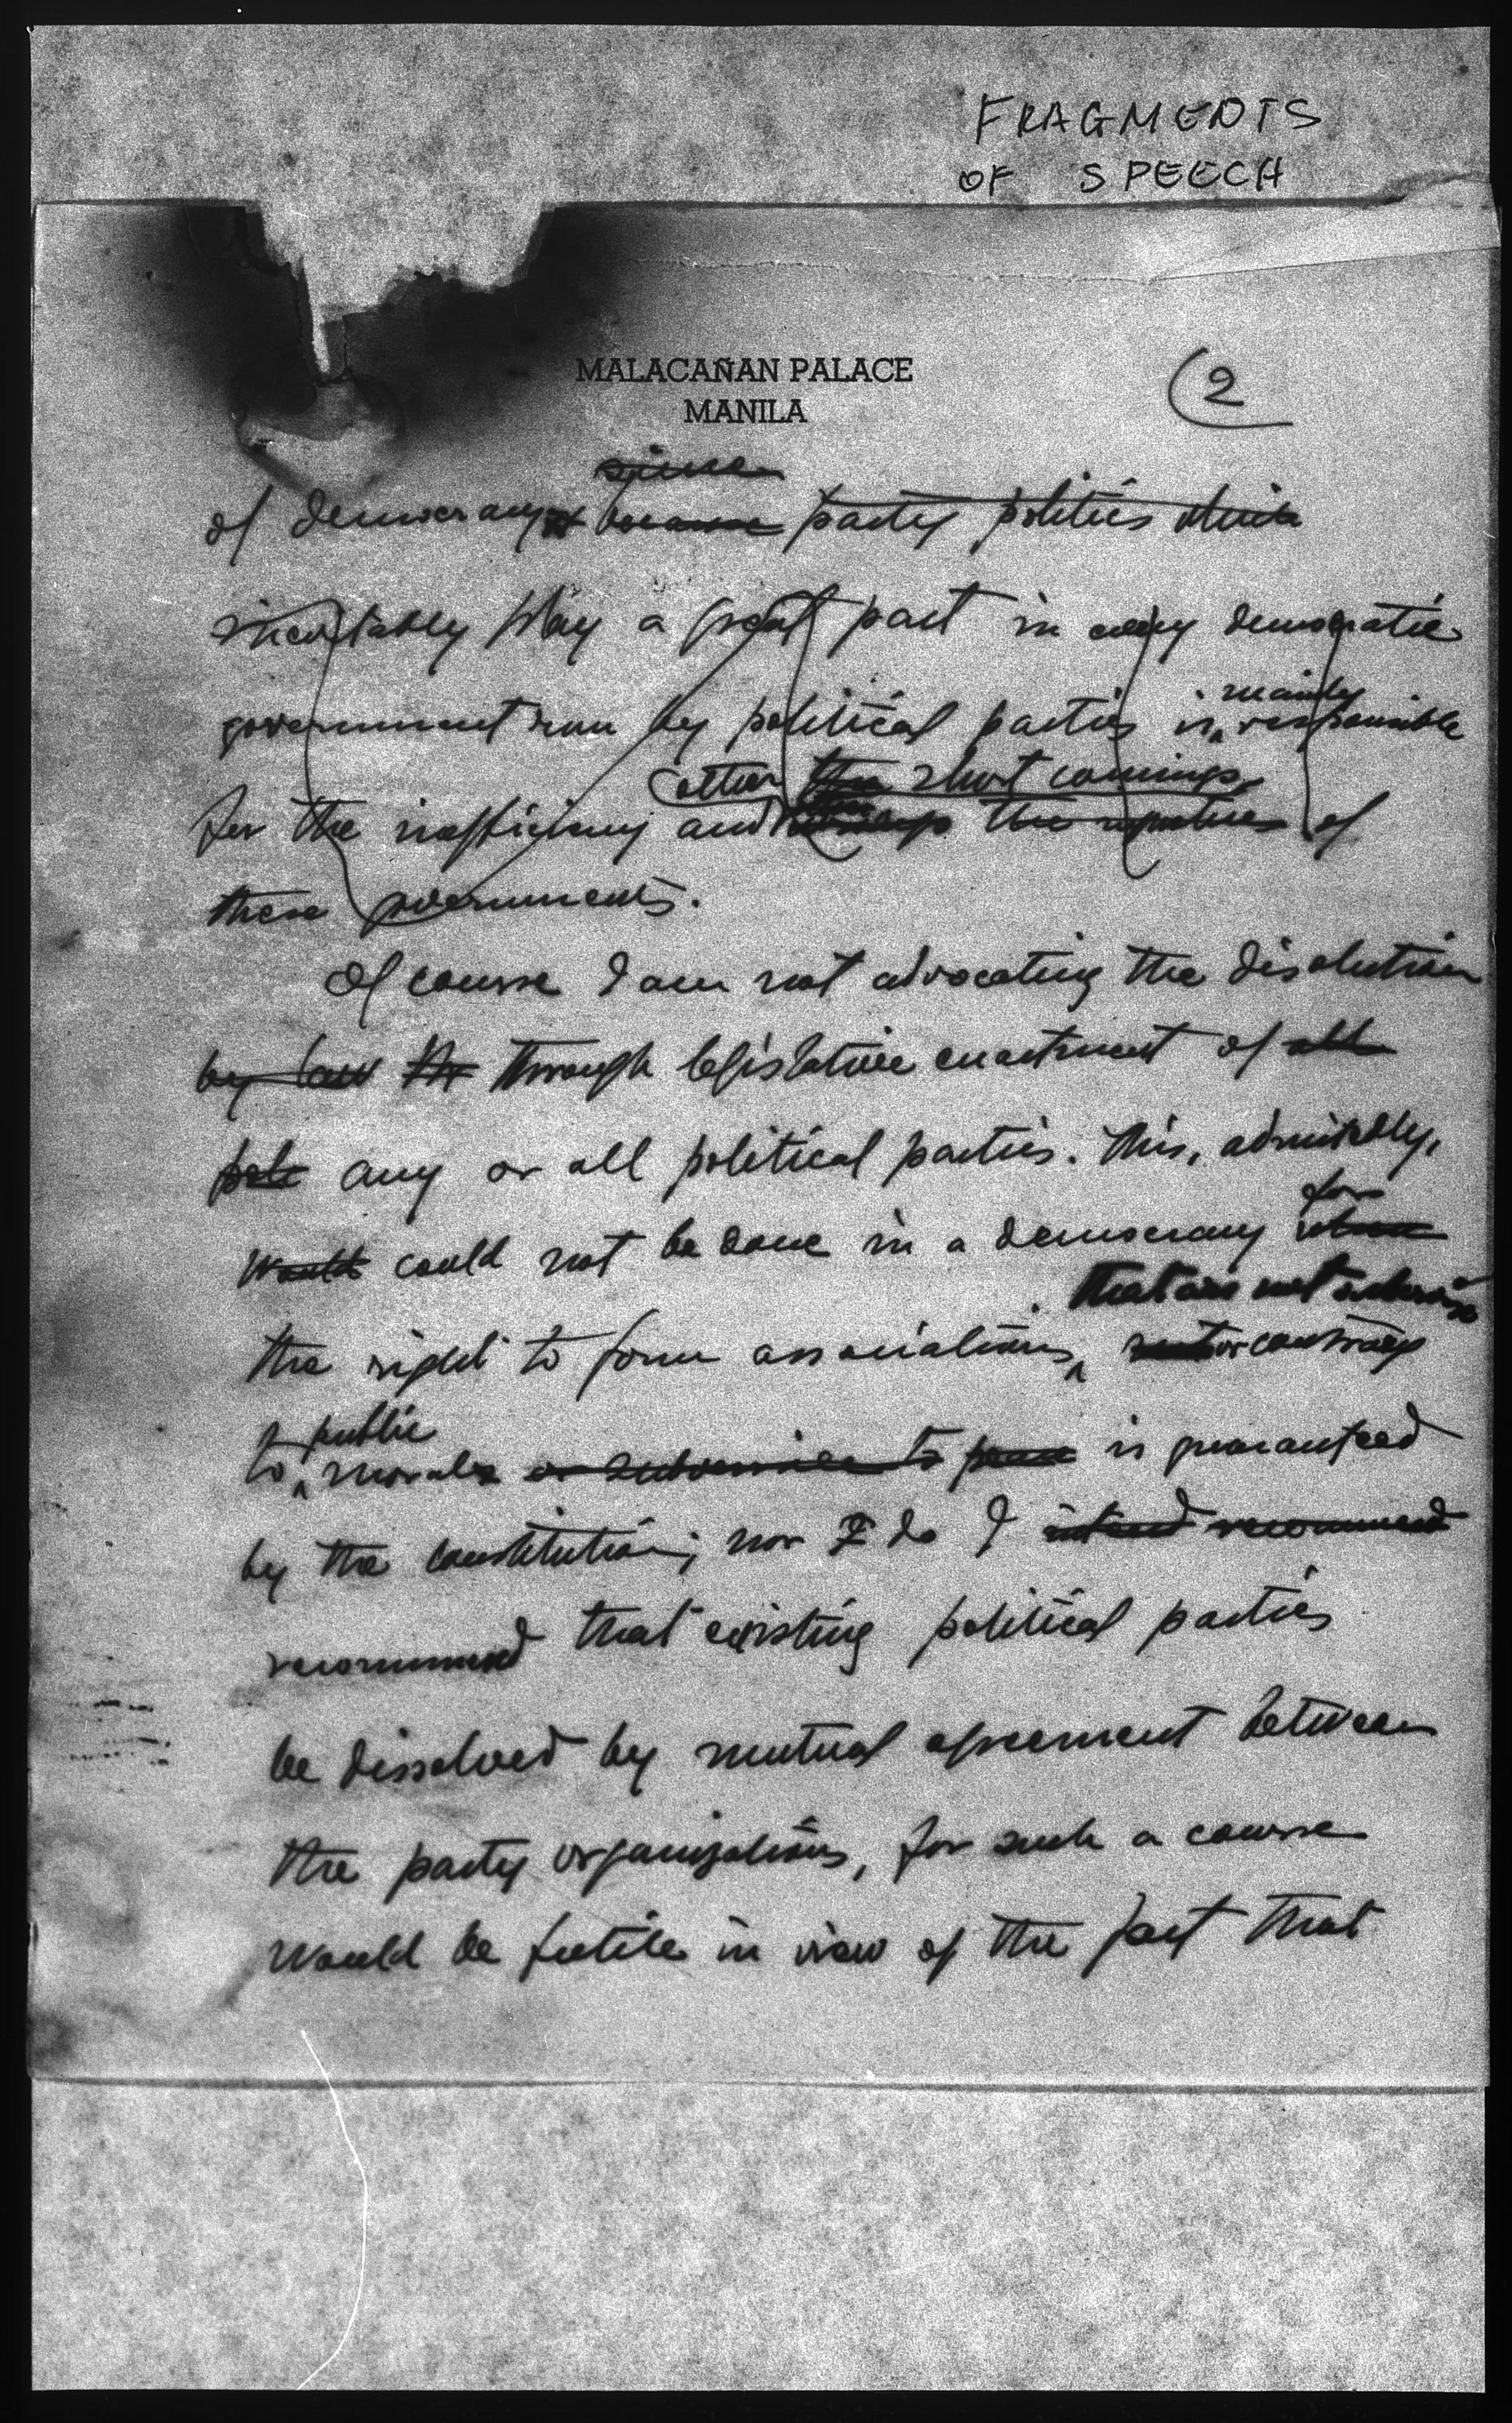 FRAGMENTS
OF SPEECH
MALACAÑAN PALACE
MANILA
2
since
of democracy because party politics which
inevitably play a great part in every democratic
mainly
government run by political parties is responsible
other the short comings
for the inefficiency and the of
these governments.
Of course I am not advocating the disolution
by law the through legislative enactment of all
poli any or all political parties. This, admittedly,
for
would could not be done in a democracy where
that are not subversive
the right to form associations or contrary
public
to morals or subversive to peace is guaranteed
by the constitution; nor I do I intend recommend
recommend that existing political parties
be dissolved by mutual agreement between
the party organizations, for such a course
would be futile in view of the fact that